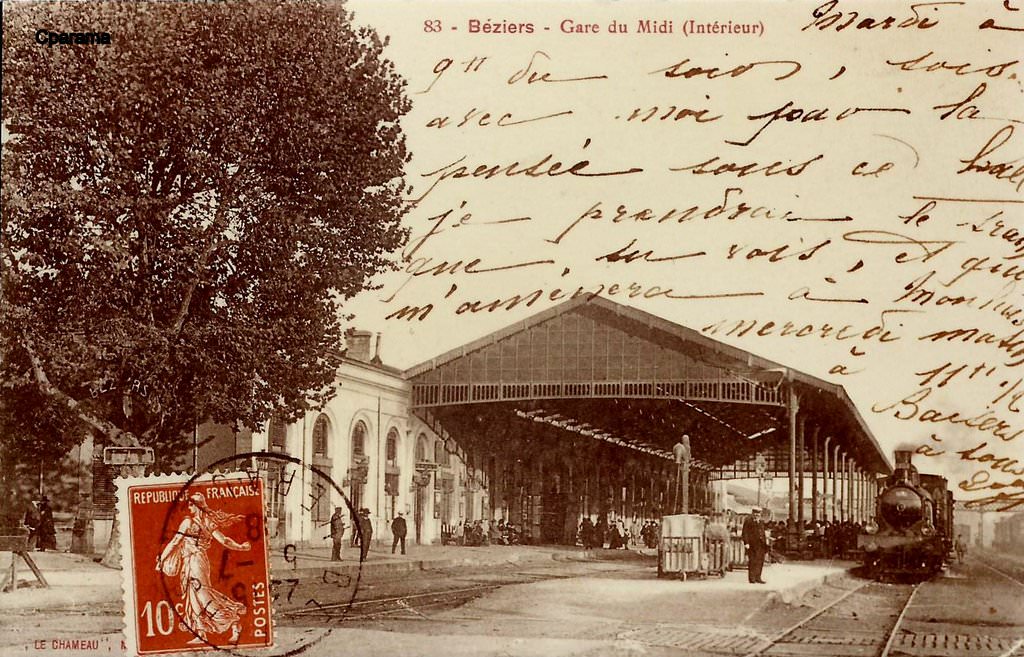 Cparama
83 - Béziers - Gare du Midi (Intérieur)
Mardi à
9H du soir, sois
avec moi par la
pensée sous ce hall
je prendrai le
que tu vois, et qui
m'amènera à
mercredi matin
à 11H 1/2
Baisers
à tous
REPUBLIQUE FRANÇAISE
10c POSTES
LE CHAMEAU